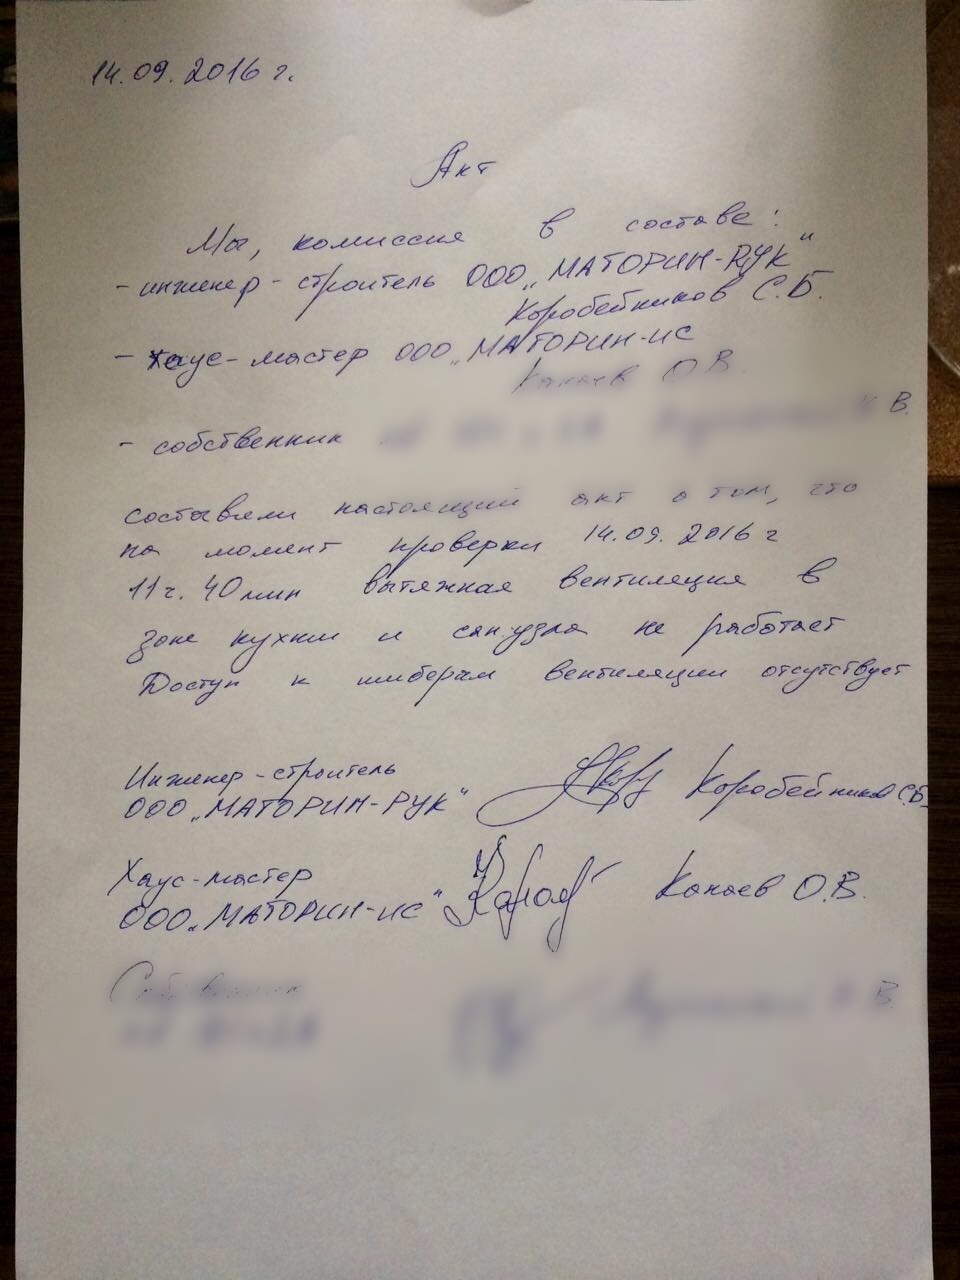 14.09.2016 г.
Акт
Мы, комиссия в составе:
- инженер-строитель ООО „МАТОРИН-РУК"
Коробейников С.Б.
- Хаус-мастер ООО „МАТОРИН-ИС
Канаев О.В.
- собственник В.
составили настоящий акт о том, что
на момент проверки 14.09.2016 г
11 ч. 40 мин вытяжная вентиляция в
зоне кухни и сан.узла не работает
Доступ к шиберам вентиляции отсутствует
Инженер-строитель
ООО „МАТОРИН-РУК" Коробейников С.Б.
Хаус-мастер
ООО „МАТОРИН-ИС" Канаев О.В.
Собственник В.